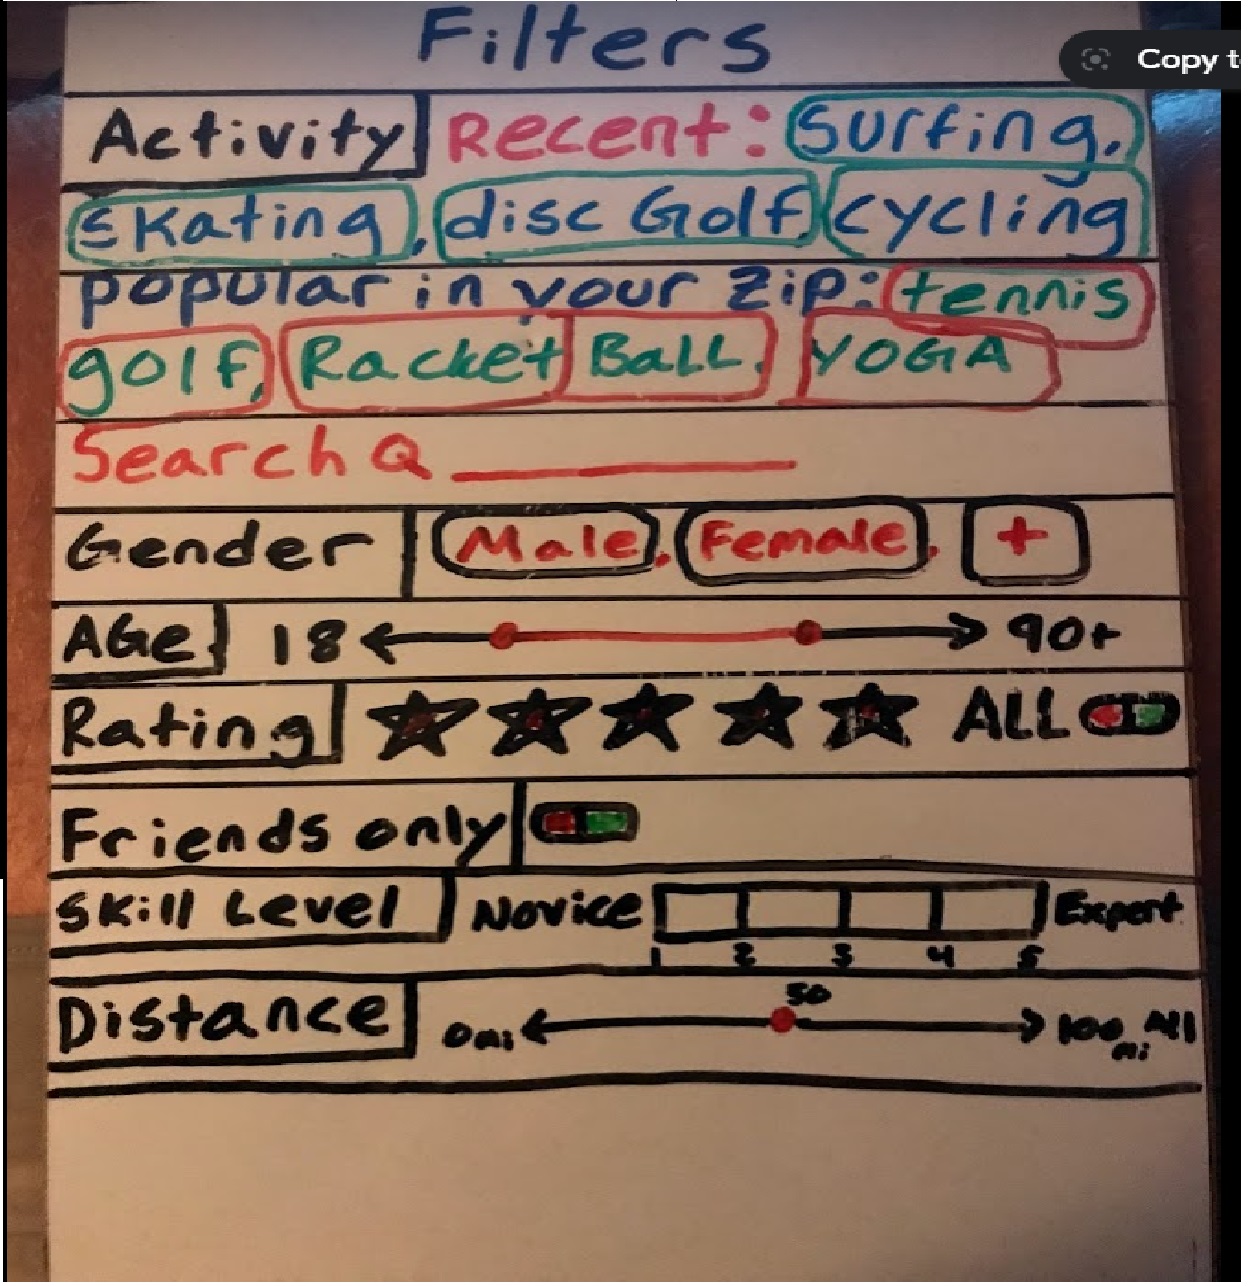 Filters
Copy t
Activity Recent: Surfing,
Skating, disc Golf, cycling
popular in your Zip: tennis
golf, Racket Ball, YOGA
Search Q
Gender Male, Female, +
AGe 18 90+
Rating ALL
Friends only
Skill Level Novice Expert
1 2 3 4 5
Distance 0mi 50 100 mi All